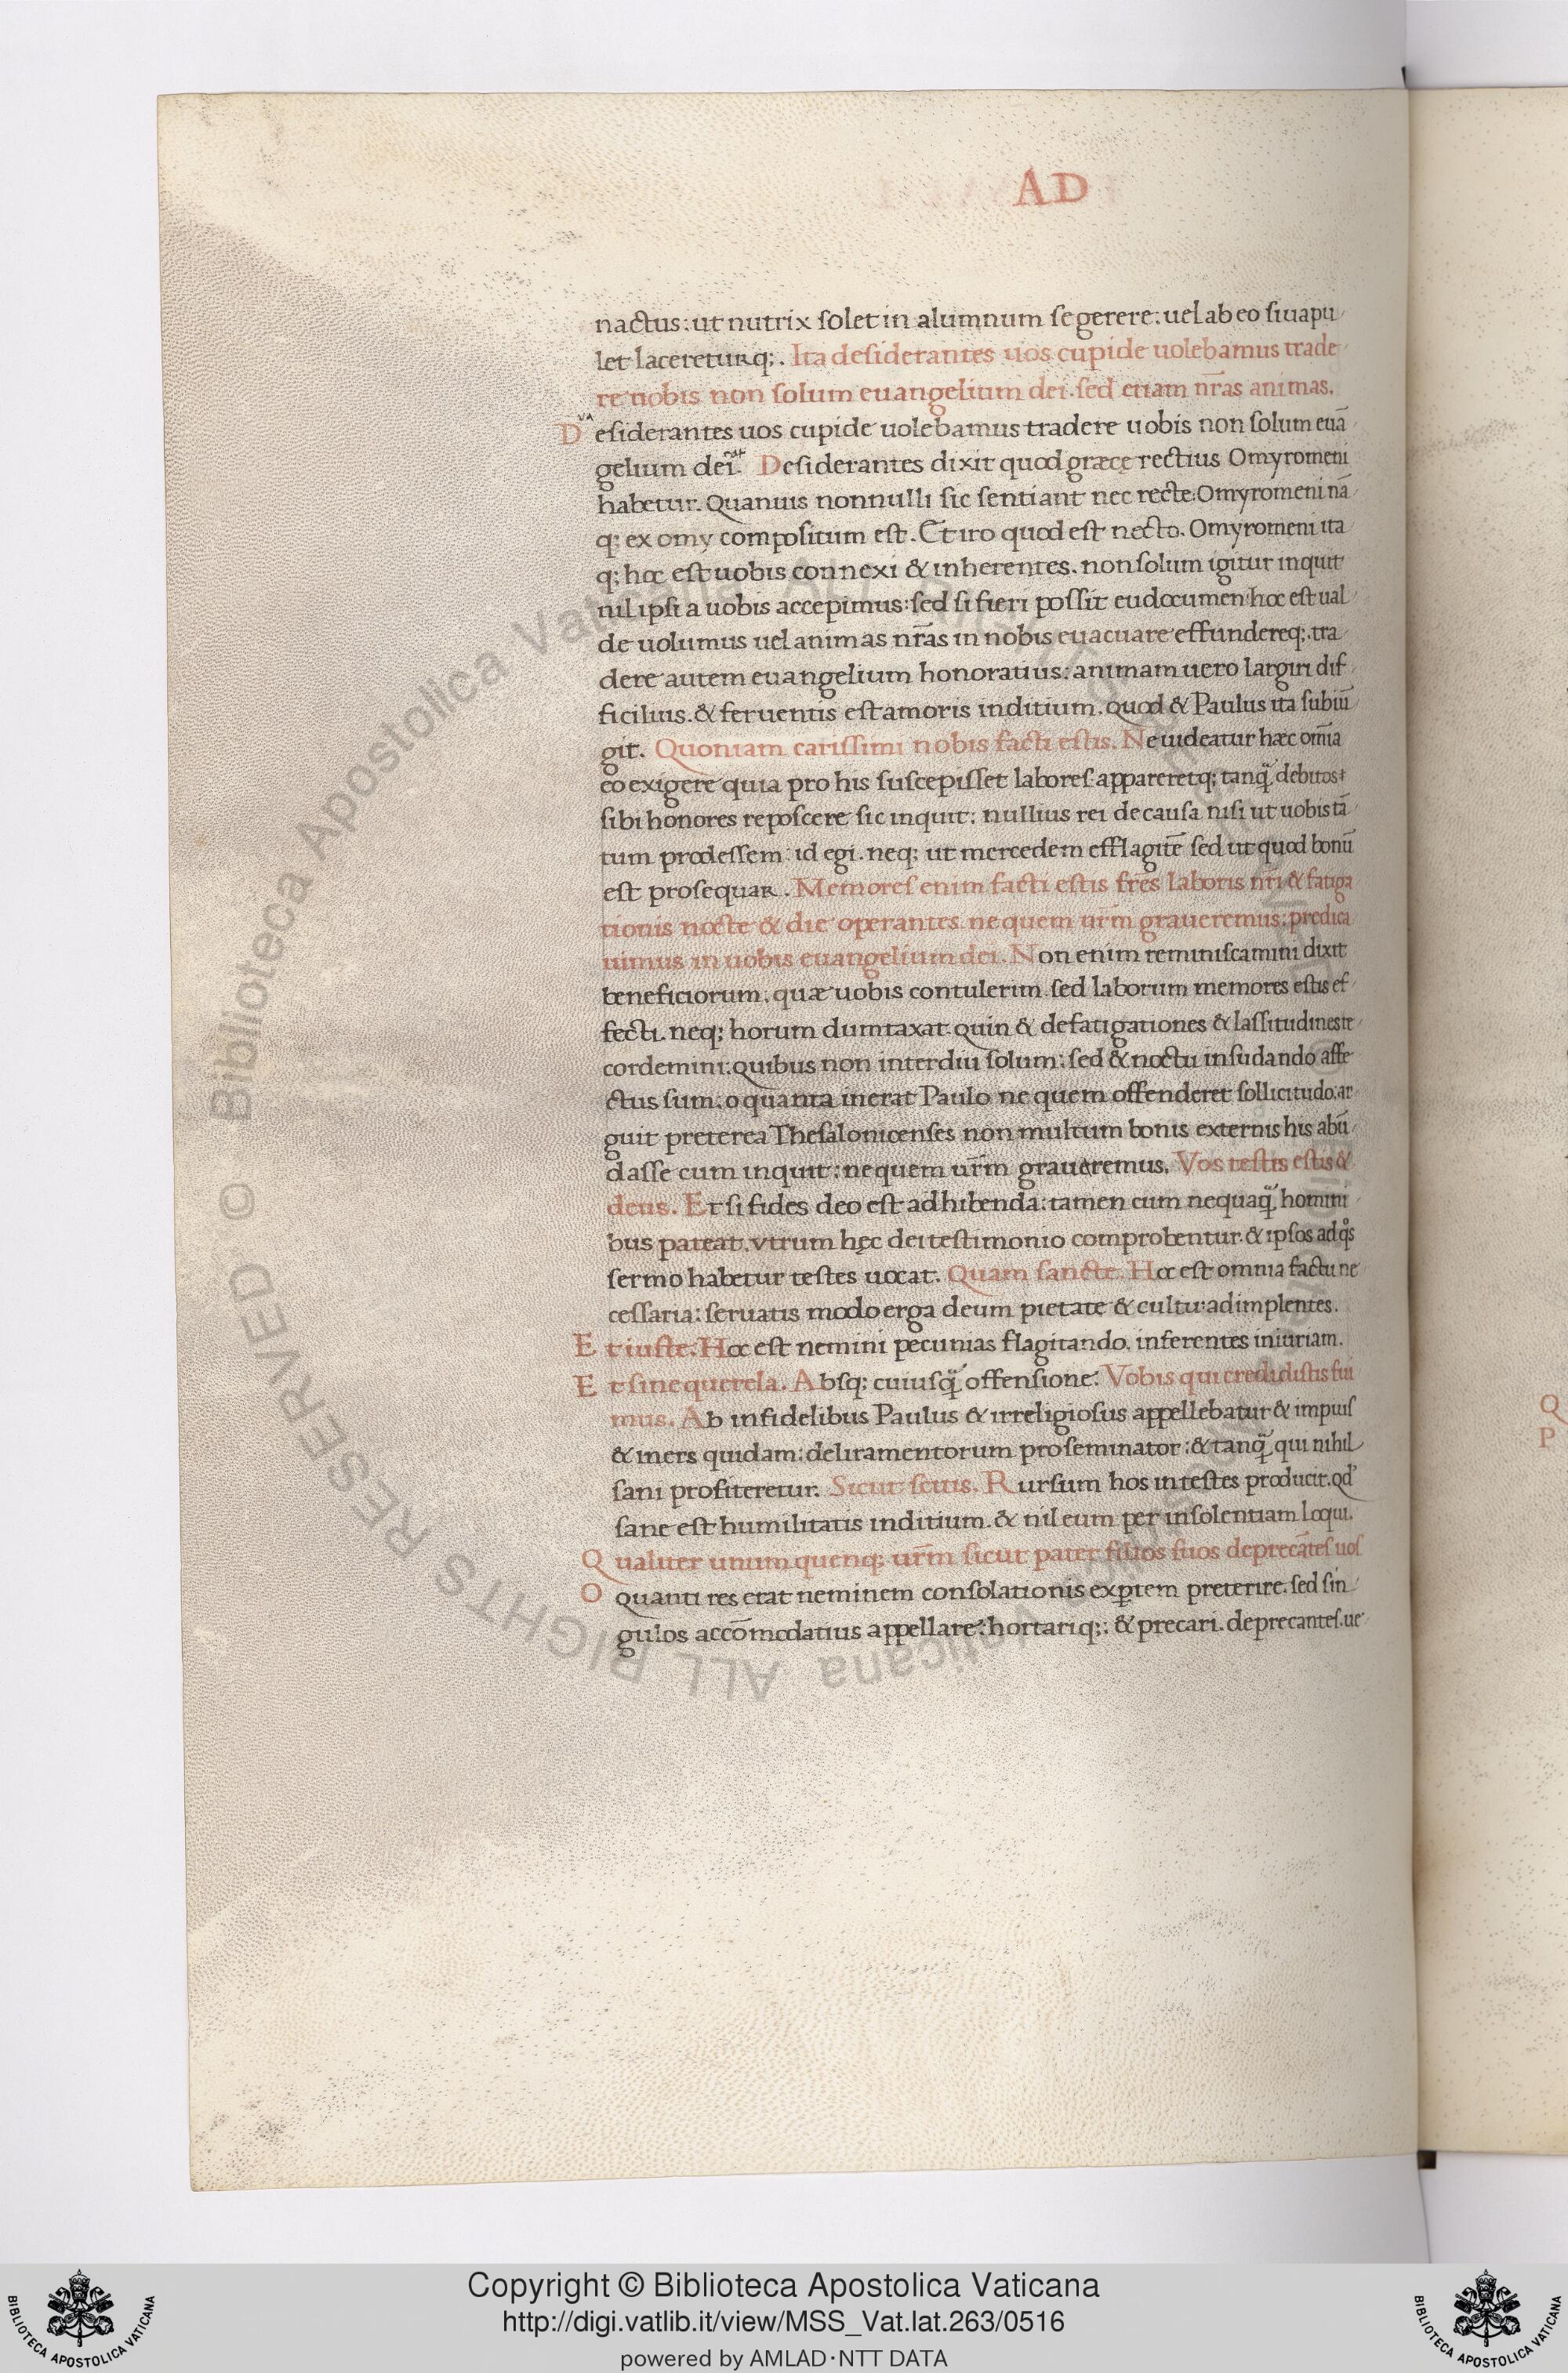 AD
nactus: ut nutrix solet in alumnum se gerere: uel ab eo si uapu
let lacereturq;. Ita desiderantes uos cupide uolebamus trade
re uobis non solum euangelium dei. sed etiam nr̄as animas.
Desiderantes uos cupide uolebamus tradere uobis non solum euā
gelium dei. Desiderantes dixit quod græce rectius Omyromeni
habetur. Quanuis nonnulli sic sentiant nec recte: Omyromeni nā
q; ex omy compositum est. Et iro quod est necto. Omyromeni ita
q; hoc est uobis connexi & inherentes. non solum igitur inquit
nil ipsi a uobis accepimus: sed si fieri possit eudocumen hoc est ual
de uolumus uel animas nr̄as in nobis euacuare effundereq;. tra
dere autem euangelium honoratius: animam uero largiri dif
ficilius. & feruentis est amoris inditium. quod & Paulus ita subiū
git. Quoniam carissimi nobis facti estis. Ne uideatur hæc om̄ia
eo exigere quia pro his suscepisset labores appareretq; tanq̄ debitos
sibi honores reposcere sic inquit: nullius rei de causa nisi ut uobis tā
tum prodessem id egi. neq; ut mercedem efflagitē sed ut quod bonū
est prosequar. Memores enim facti estis fr̄es laboris nr̄i & fatiga
tionis nocte & die operantes ne quem ur̄m graueremus: predica
uimus in uobis euangelium dei. Non enim reminiscamini dixit
beneficiorum, quæ uobis contulerim sed laborum memores estis ef
fecti. neq; horum dumtaxat quin & defatigationes & lassitudines re
cordemini: quibus non interdiu solum: sed & noctu insudando affe
ctus sum. o quanta inerat Paulo ne quem offenderet sollicitudo. ar
guit preterea Thesalonicenses non multum bonis externis his abū
dasse cum inquit: ne quem ur̄m graueremus. Vos testis estis &
deus. Et si fides deo est adhibenda: tamen cum nequaq̄ homini
bus pateat. utrum hęc dei testimonio comprobentur. & ipsos ad q̊s
sermo habetur testes uocat. Quam sancte. Hoc est omnia factu ne
cessaria: seruatis modo erga deum pietate & cultu: adimplentes.
Et iuste. Hoc est nemini pecunias flagitando. inferentes iniuriam.
Et sine querela. Absq; cuiusq̄ offensione. Vobis qui credidistis fui
mus. Ab infidelibus Paulus & irreligiosus appellebatur & impius
& iners quidam: deliramentorum proseminator: & tanq̄ qui nihil
sani profiteretur. Sicut scitis. Rursum hos in testes producit. qd
sane est humilitatis inditium. & nil eum per insolentiam loqui.
Qualiter unum quenq; ur̄m sicut pater filios suos deprecātes uos
O quanti res erat neminem consolationis exp̱tem preterire. sed sin
gulos accōmodatius appellare: hortariq;: & precari. deprecantes. ue
Q
P
Copyright © Biblioteca Apostolica Vaticana
http://digi.vatlib.it/view/MSS_Vat.lat.263/0516
powered by AMLAD·NTT DATA